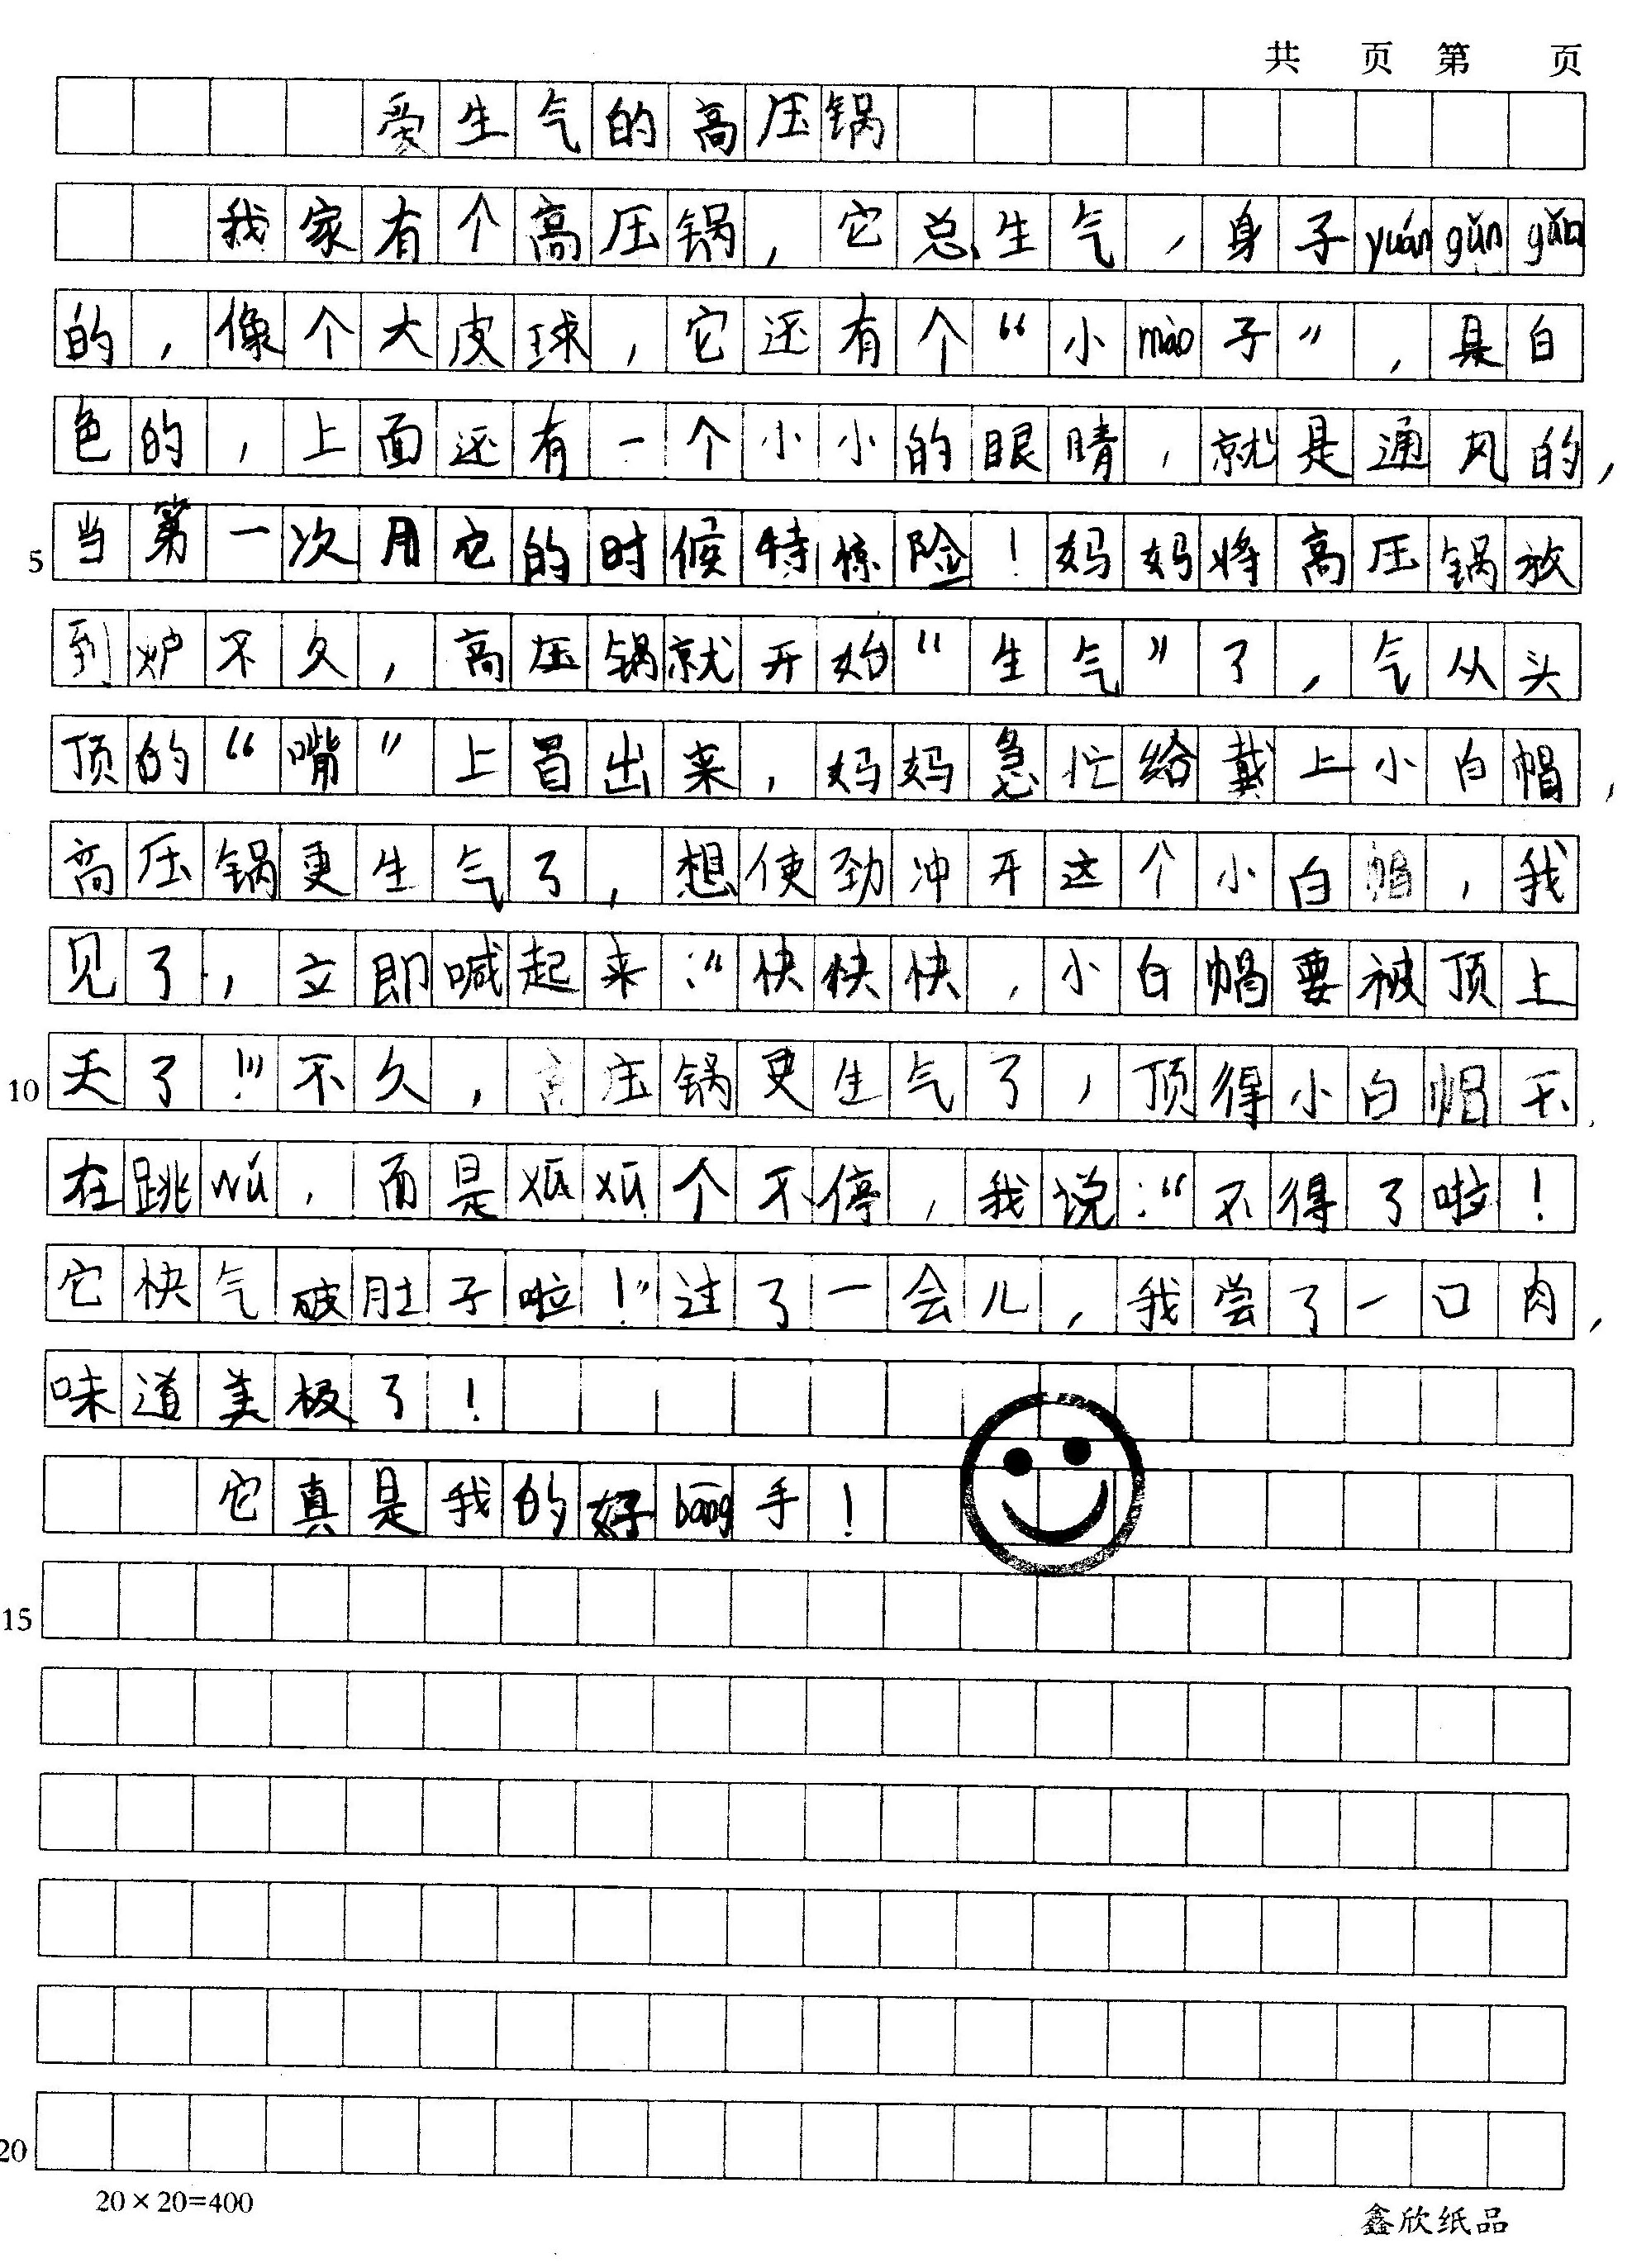 共 页 第 页
爱生气的高压锅
我家有个高压锅，它总生气，身子yuán gǔn gǔn
的，像个大皮球，它还有个“小mào子”，是白
色的，上面还有一个小小的眼睛，就是通风的，
5 当第一次用它的时候特惊险！妈妈将高压锅放
到炉不久，高压锅就开始“生气”了，气从头
顶的“嘴”上冒出来，妈妈急忙给戴上小白帽，
高压锅更生气了，想使劲冲开这个小白帽，我
见了，立即喊起来：“快快快，小白帽要被顶上
10 天了！”不久，高压锅更生气了，顶得小白帽不
在跳wǔ，而是xū xū个不停，我说：“不得了啦！
它快气破肚子啦！”过了一会儿，我尝了一口肉，
味道美极了！
它真是我的好bāng手！
15
20
20×20=400 鑫欣纸品